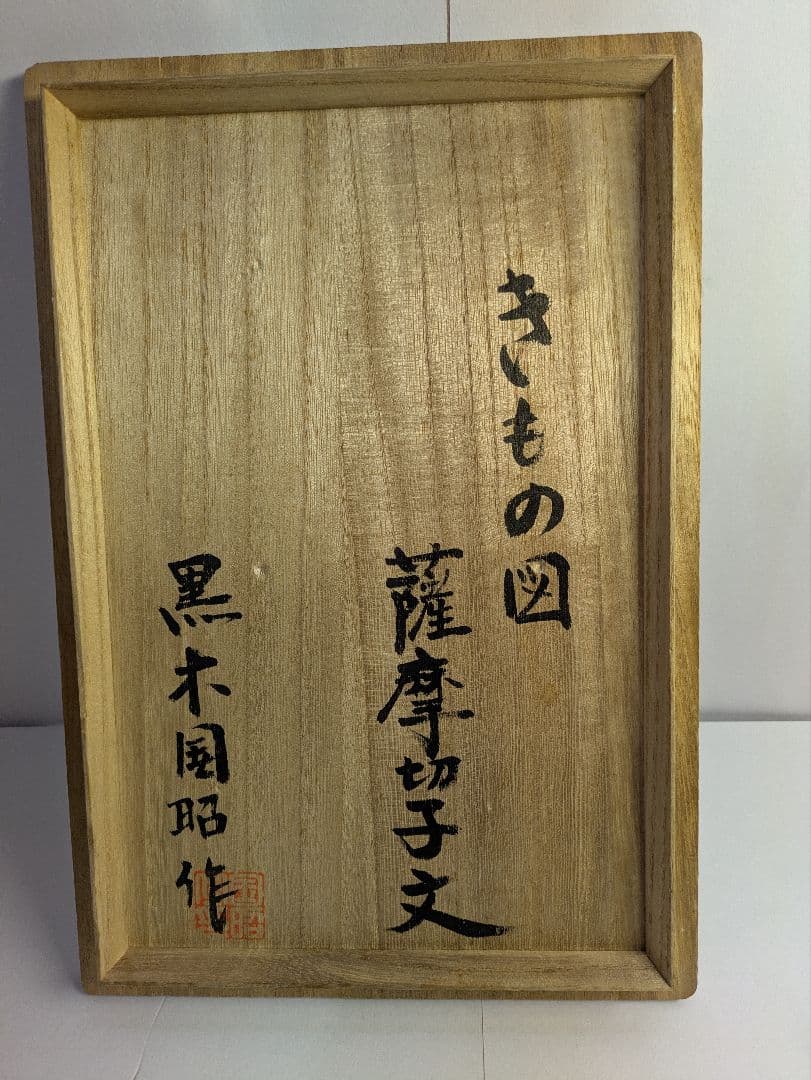 きもの図
薩摩切子文
黒木国昭作
国昭